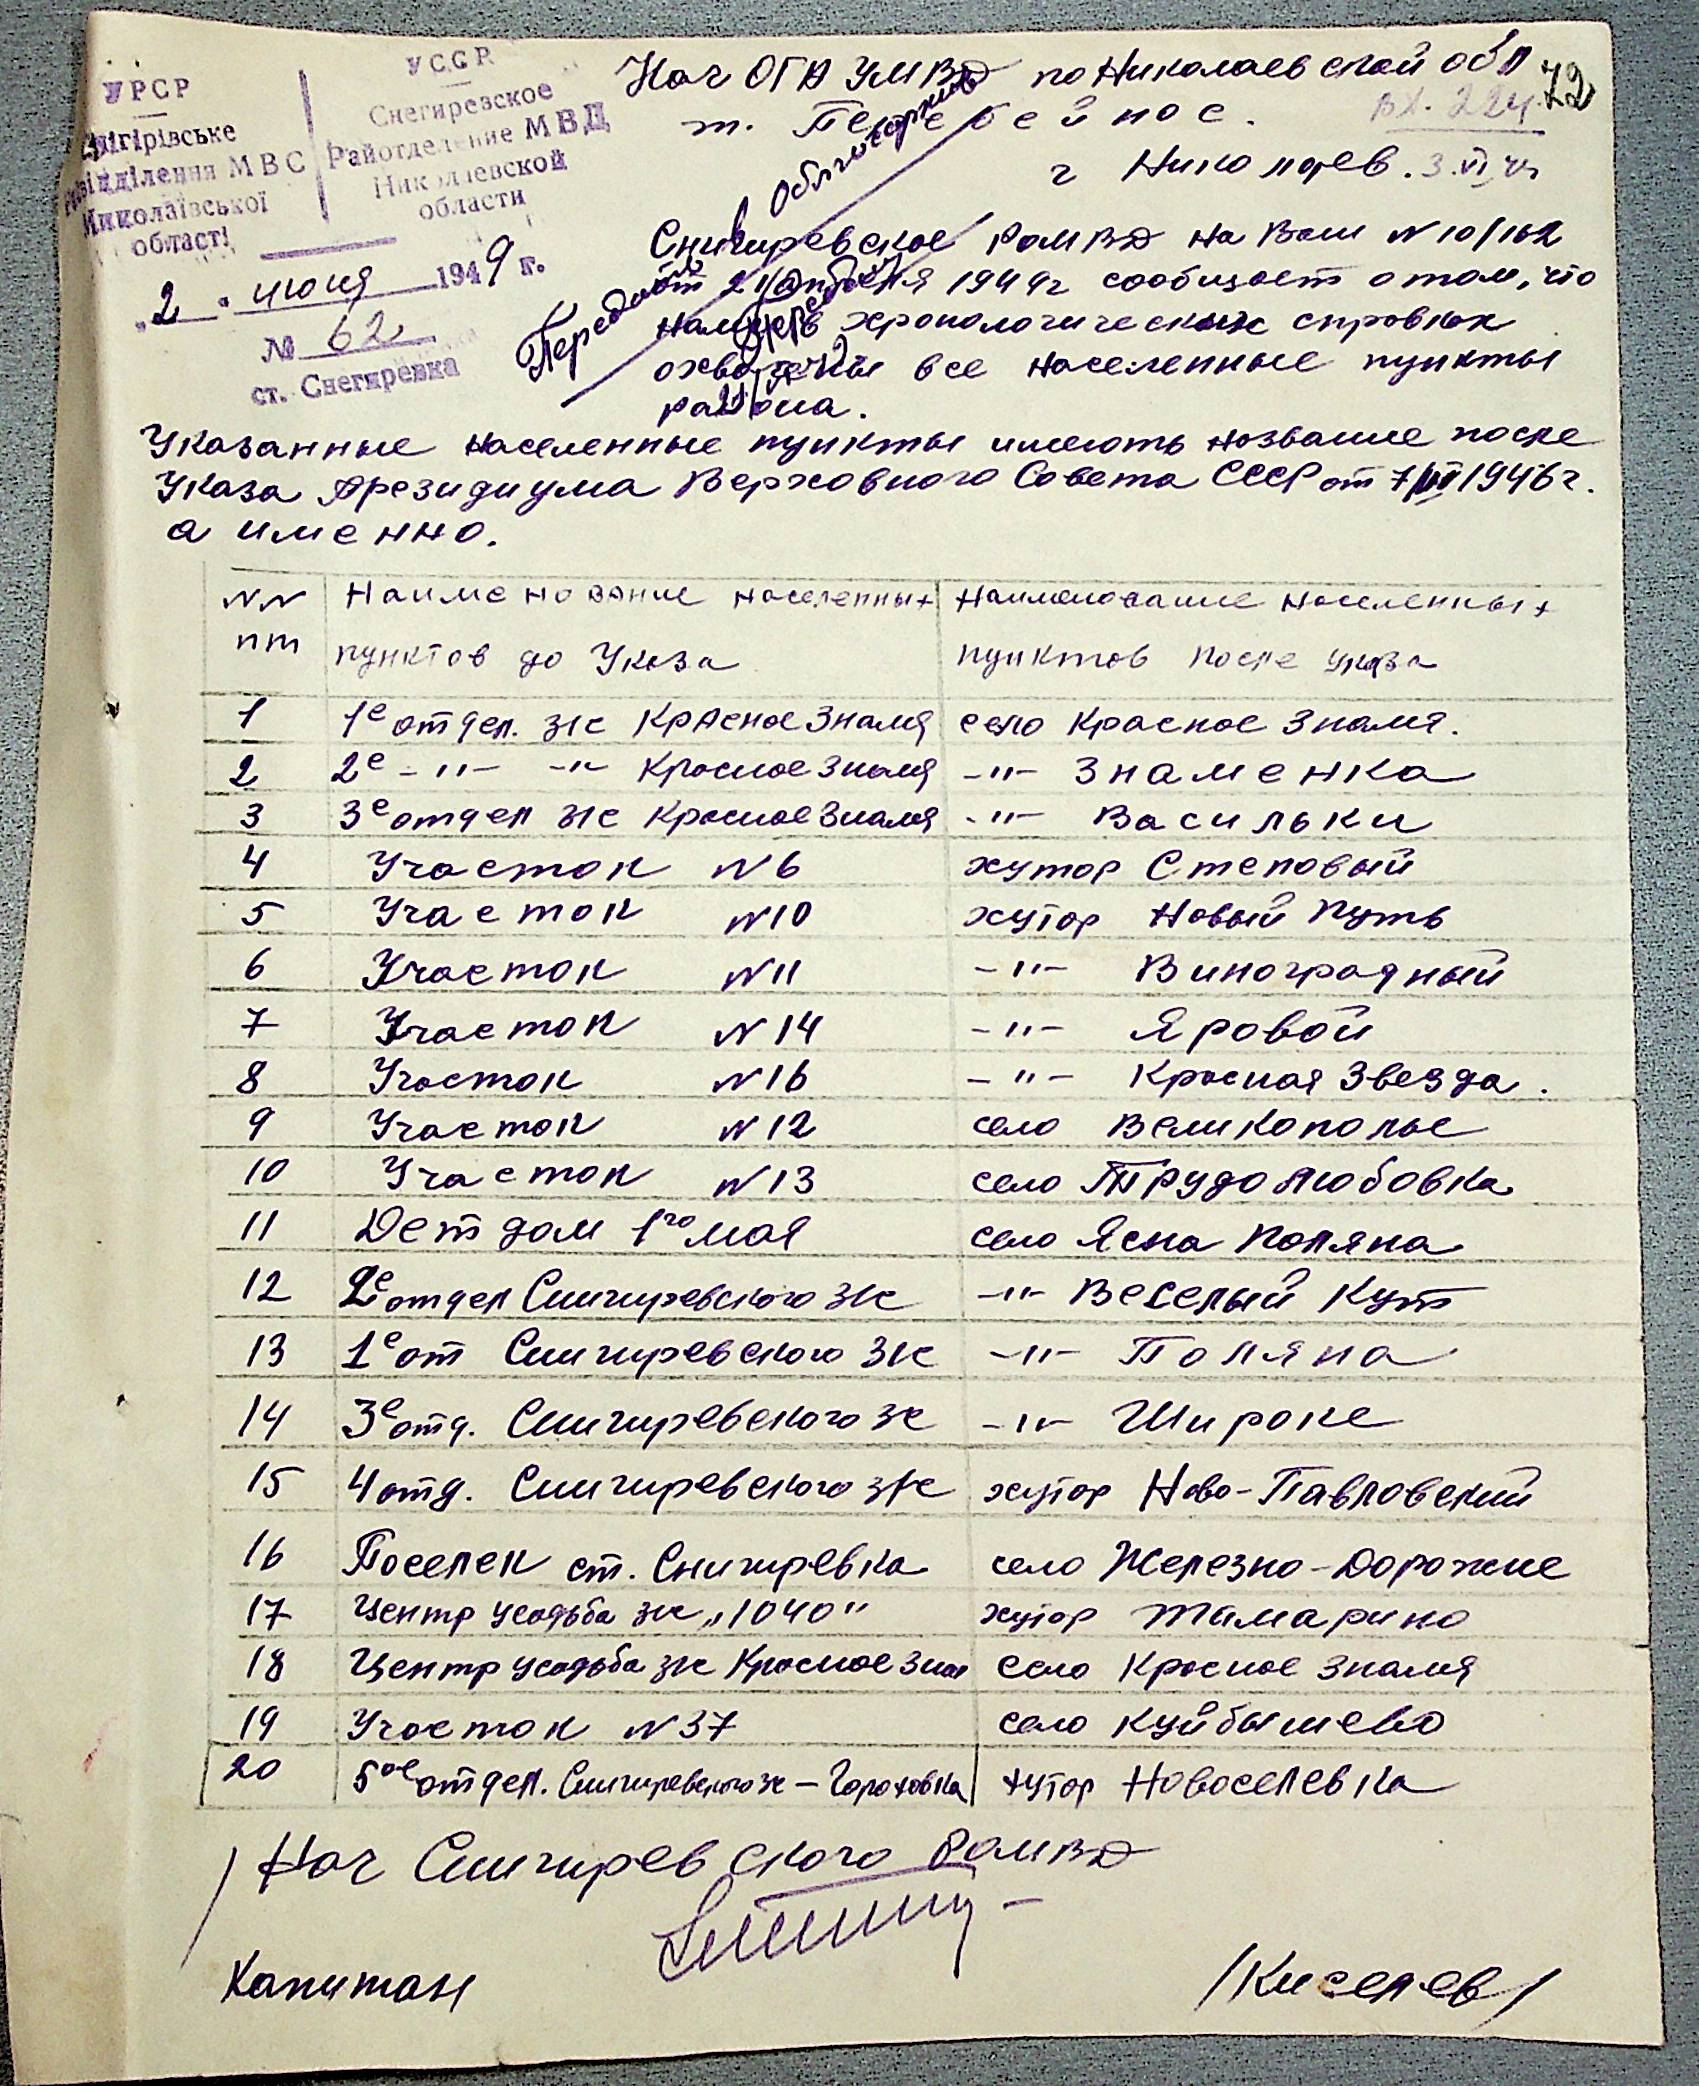 УРСР
Снігірівське
Райвідділення МВС
Миколаївської
області
УССР
Снегиревское
Райотделение МВД
Николаевской
области
"2" июня 1949 г.
№ 62
ст. Снегиревка
72
Нач ОГА УМВД по Николаевской обл
т. Перебейнос.
Вх. 224
г Николаев. 3.VI.49
Передать в Облгосархив
Снигиревское РОМВД на Ваш N 10/162
от 21 1949г сообщает о том, что
нами в хронологических справках
охвачены все населенные пункты
района.
Указанные населенные пункты имеють название после
Указа Президиума Верховного Совета СССР от 7/ 1946г.
а именно.
NN пт | Наименование населенных пунктов до Указа | Наименование населенных пунктов после указа
1 1е отдел. з/с Красное Знамя село Красное Знамя.
2 2е -"- -"- Красное Знамя -"- Знаменка
3 3е отдел з/с Красное Знамя -"- Васильки
4 Участок N 6 хутор Степовый
5 Участок N 10 хутор Новый Путь
6 Участок N 11 -"- Виноградный
7 Участок N 14 -"- Яровой
8 Участок N 16 -"- Красная Звезда.
9 Участок N 12 село Великополье
10 Участок N 13 село Трудолюбовка
11 Детдом 1го мая село Ясна Поляна
12 2е отдел Снигиревского з/с -"- Веселый Кут
13 1е от Снигиревского з/с -"- Поляна
14 3е отд. Снигиревского зс -"- Широке
15 4 отд. Снигиревского з/с хутор Ново-Павловский
16 Поселек ст. Снигиревка село Железно-Дорожне
17 Центр усадьба з/с "1040" хутор Тамарино
18 Центр усадьба з/с Красное Знам село Красное Знамя
19 Участок N 37 село Куйбышево
20 5ое отдел. Снигиревского зс - Гороховка хутор Новоселевка
/Нач Снигиревского РОМВД
Капитан /Киселев/